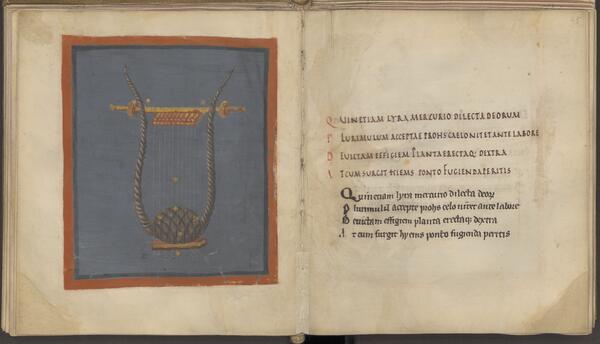 QUINETIAM LYRA MERCURIO DILECTA DEORUM
PLURIMULUM ACCEPTAE PROHS CAELO NITET ANTE LABORE
DEUICTAM EFFIGIEM PLANTA ERECTAQ DEXTRA
ATCUM SURGIT HIEMS PONTO FUGIENDA PERITIS
Quinetiam lyra mercurio dilecta deoꝝ
Plurimulū accepte prohs celo nitet ante labore
Deuictam effigiem planta erectaq; dextra
At cum surgit hyems ponto fugienda peritis